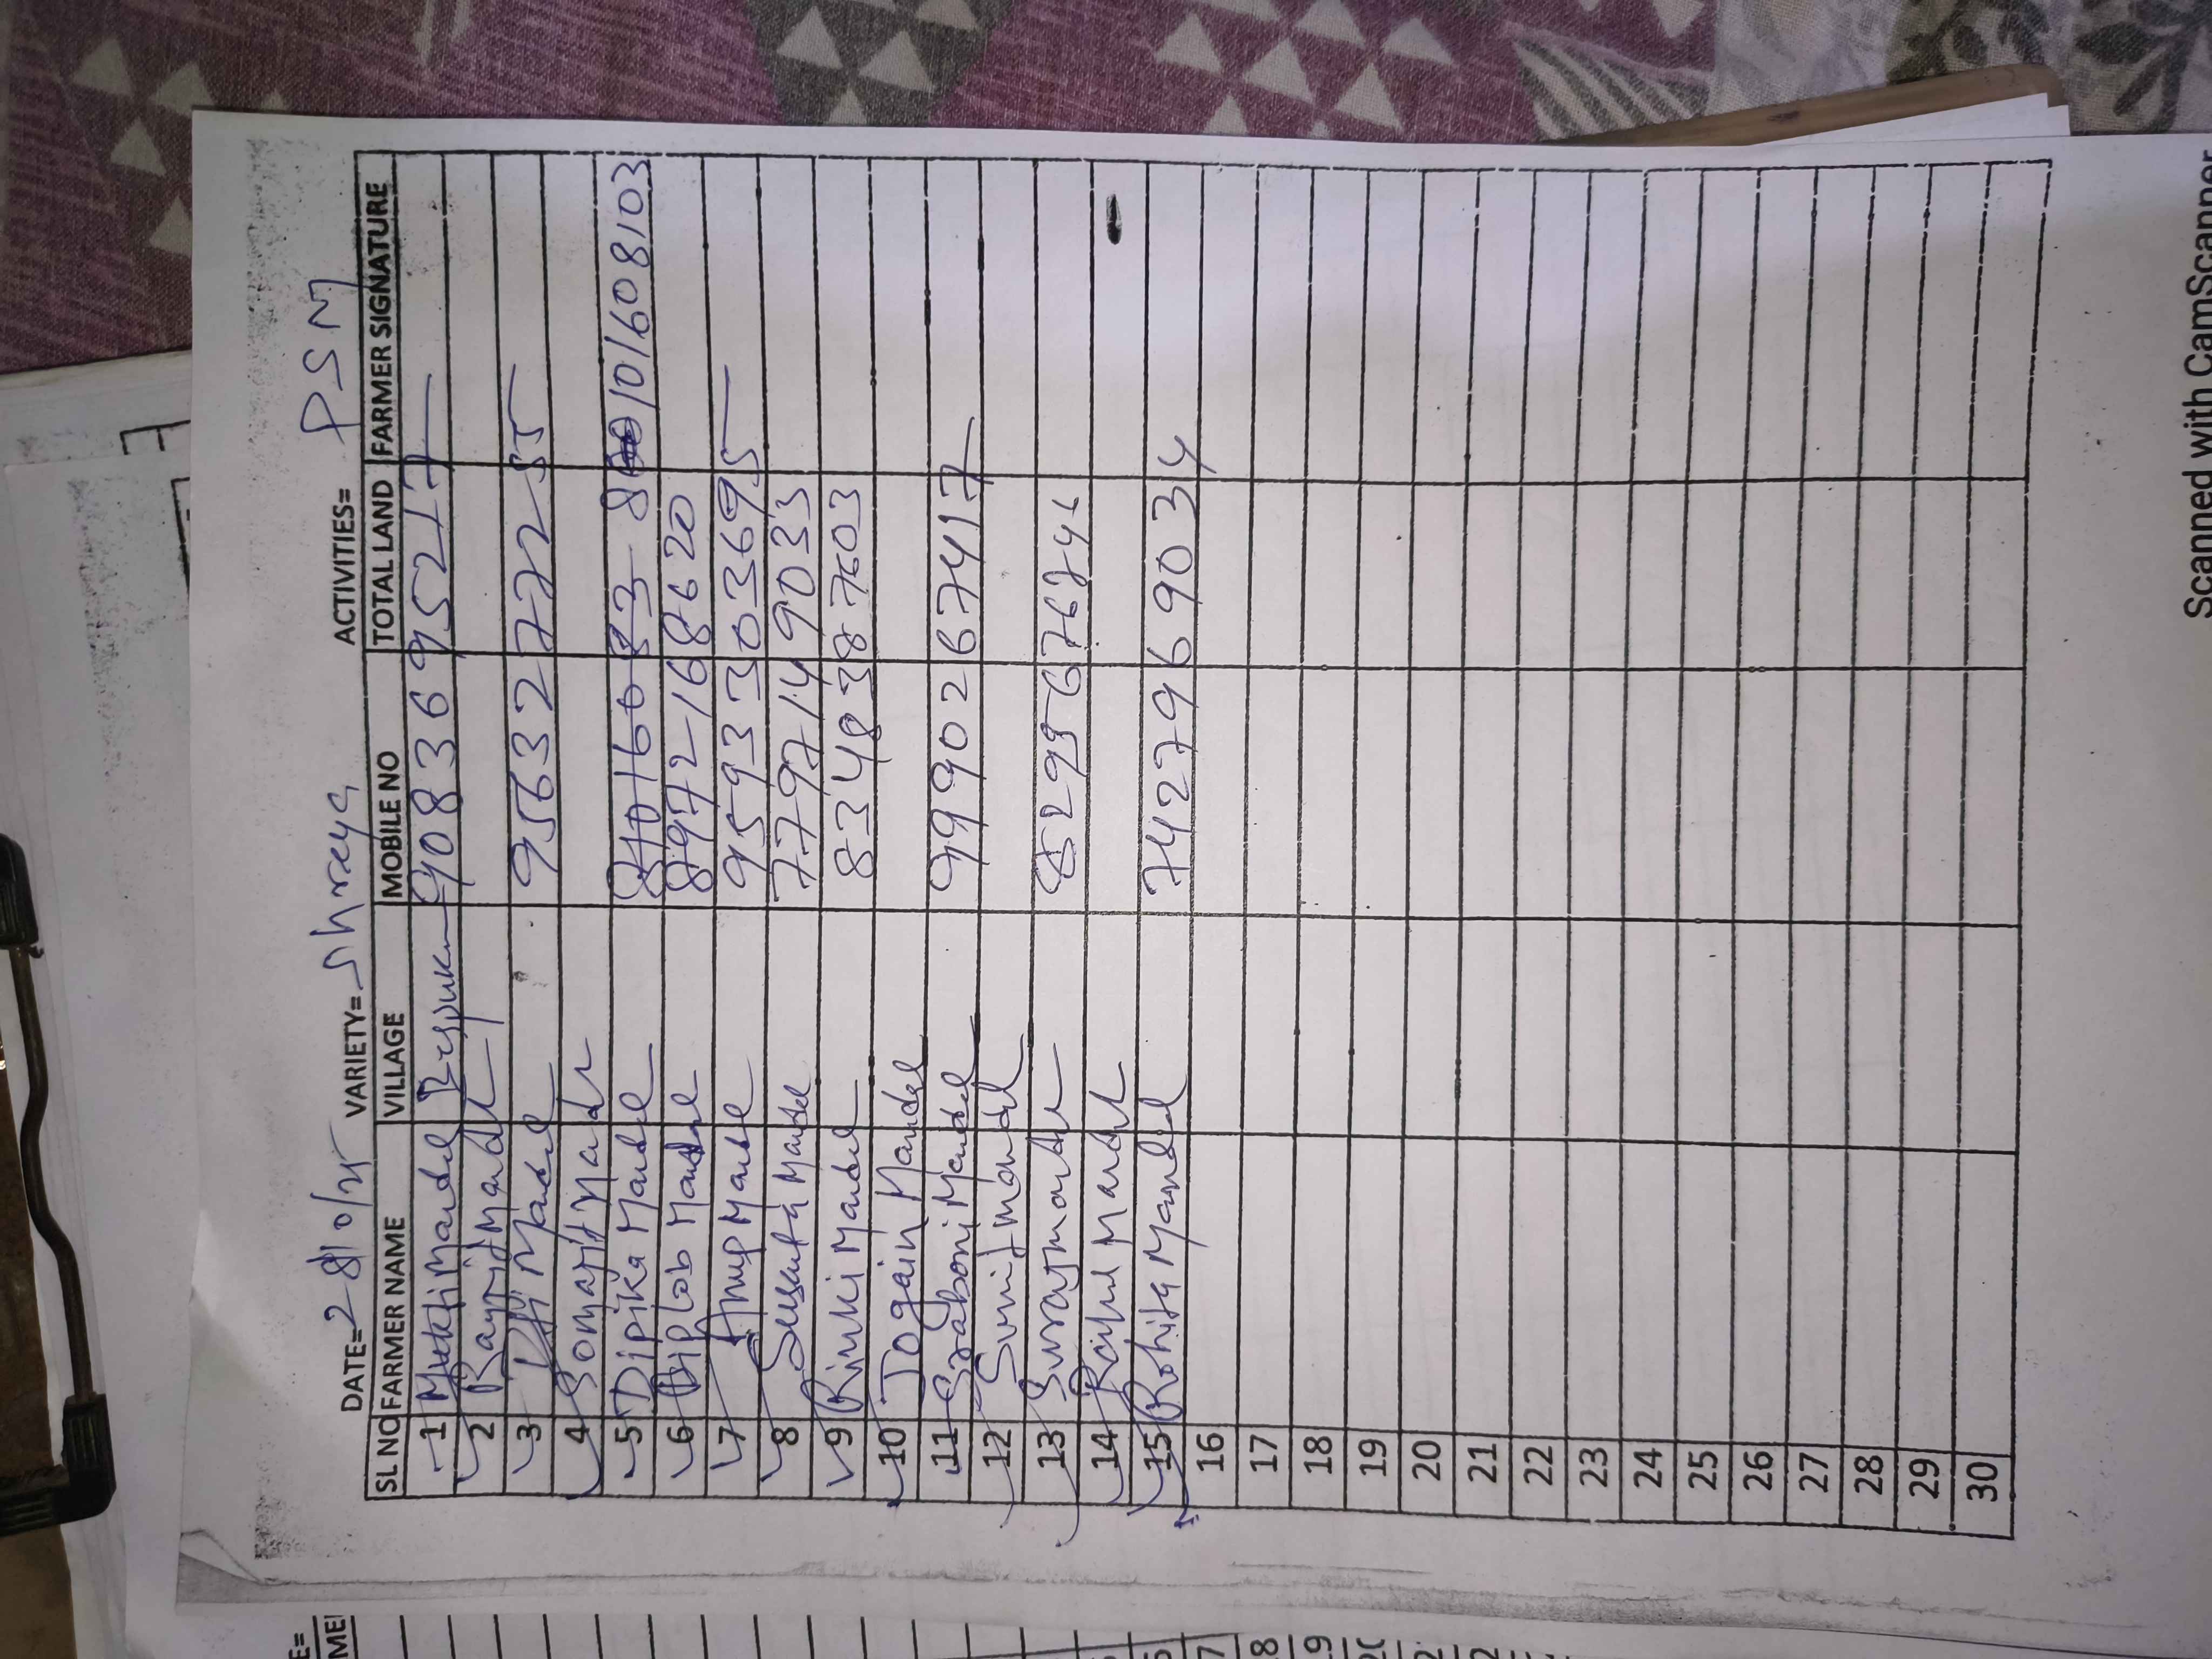 DATE= 28/10/25 VARIETY= Shreya ACTIVITIES= PSM
SL NO FARMER NAME VILLAGE MOBILE NO TOTAL LAND FARMER SIGNATURE
1 Mukti Mandal 9083699521
2 Ranjit Mandal
3 Mandal 9563277255
4 Somarit Mandal
5 Dipika Mandal 8101608103
6 Biplob Mandal 8972168620
7 Anup Mandal 9593303695
8 Susanta Mandal 7797149033
9 Rinki Mandal 8348387603
10 Jogain Mandal
11 Sraboni Mandal 9990267417
12 Sunil mondal
13 Suraj mondal
14 Rahul Mandal
15 Rohita Mandal 7427969034
16
17
18
19
20
21
22
23
24
25
26
27
28
29
30
Scanned with CamScanner